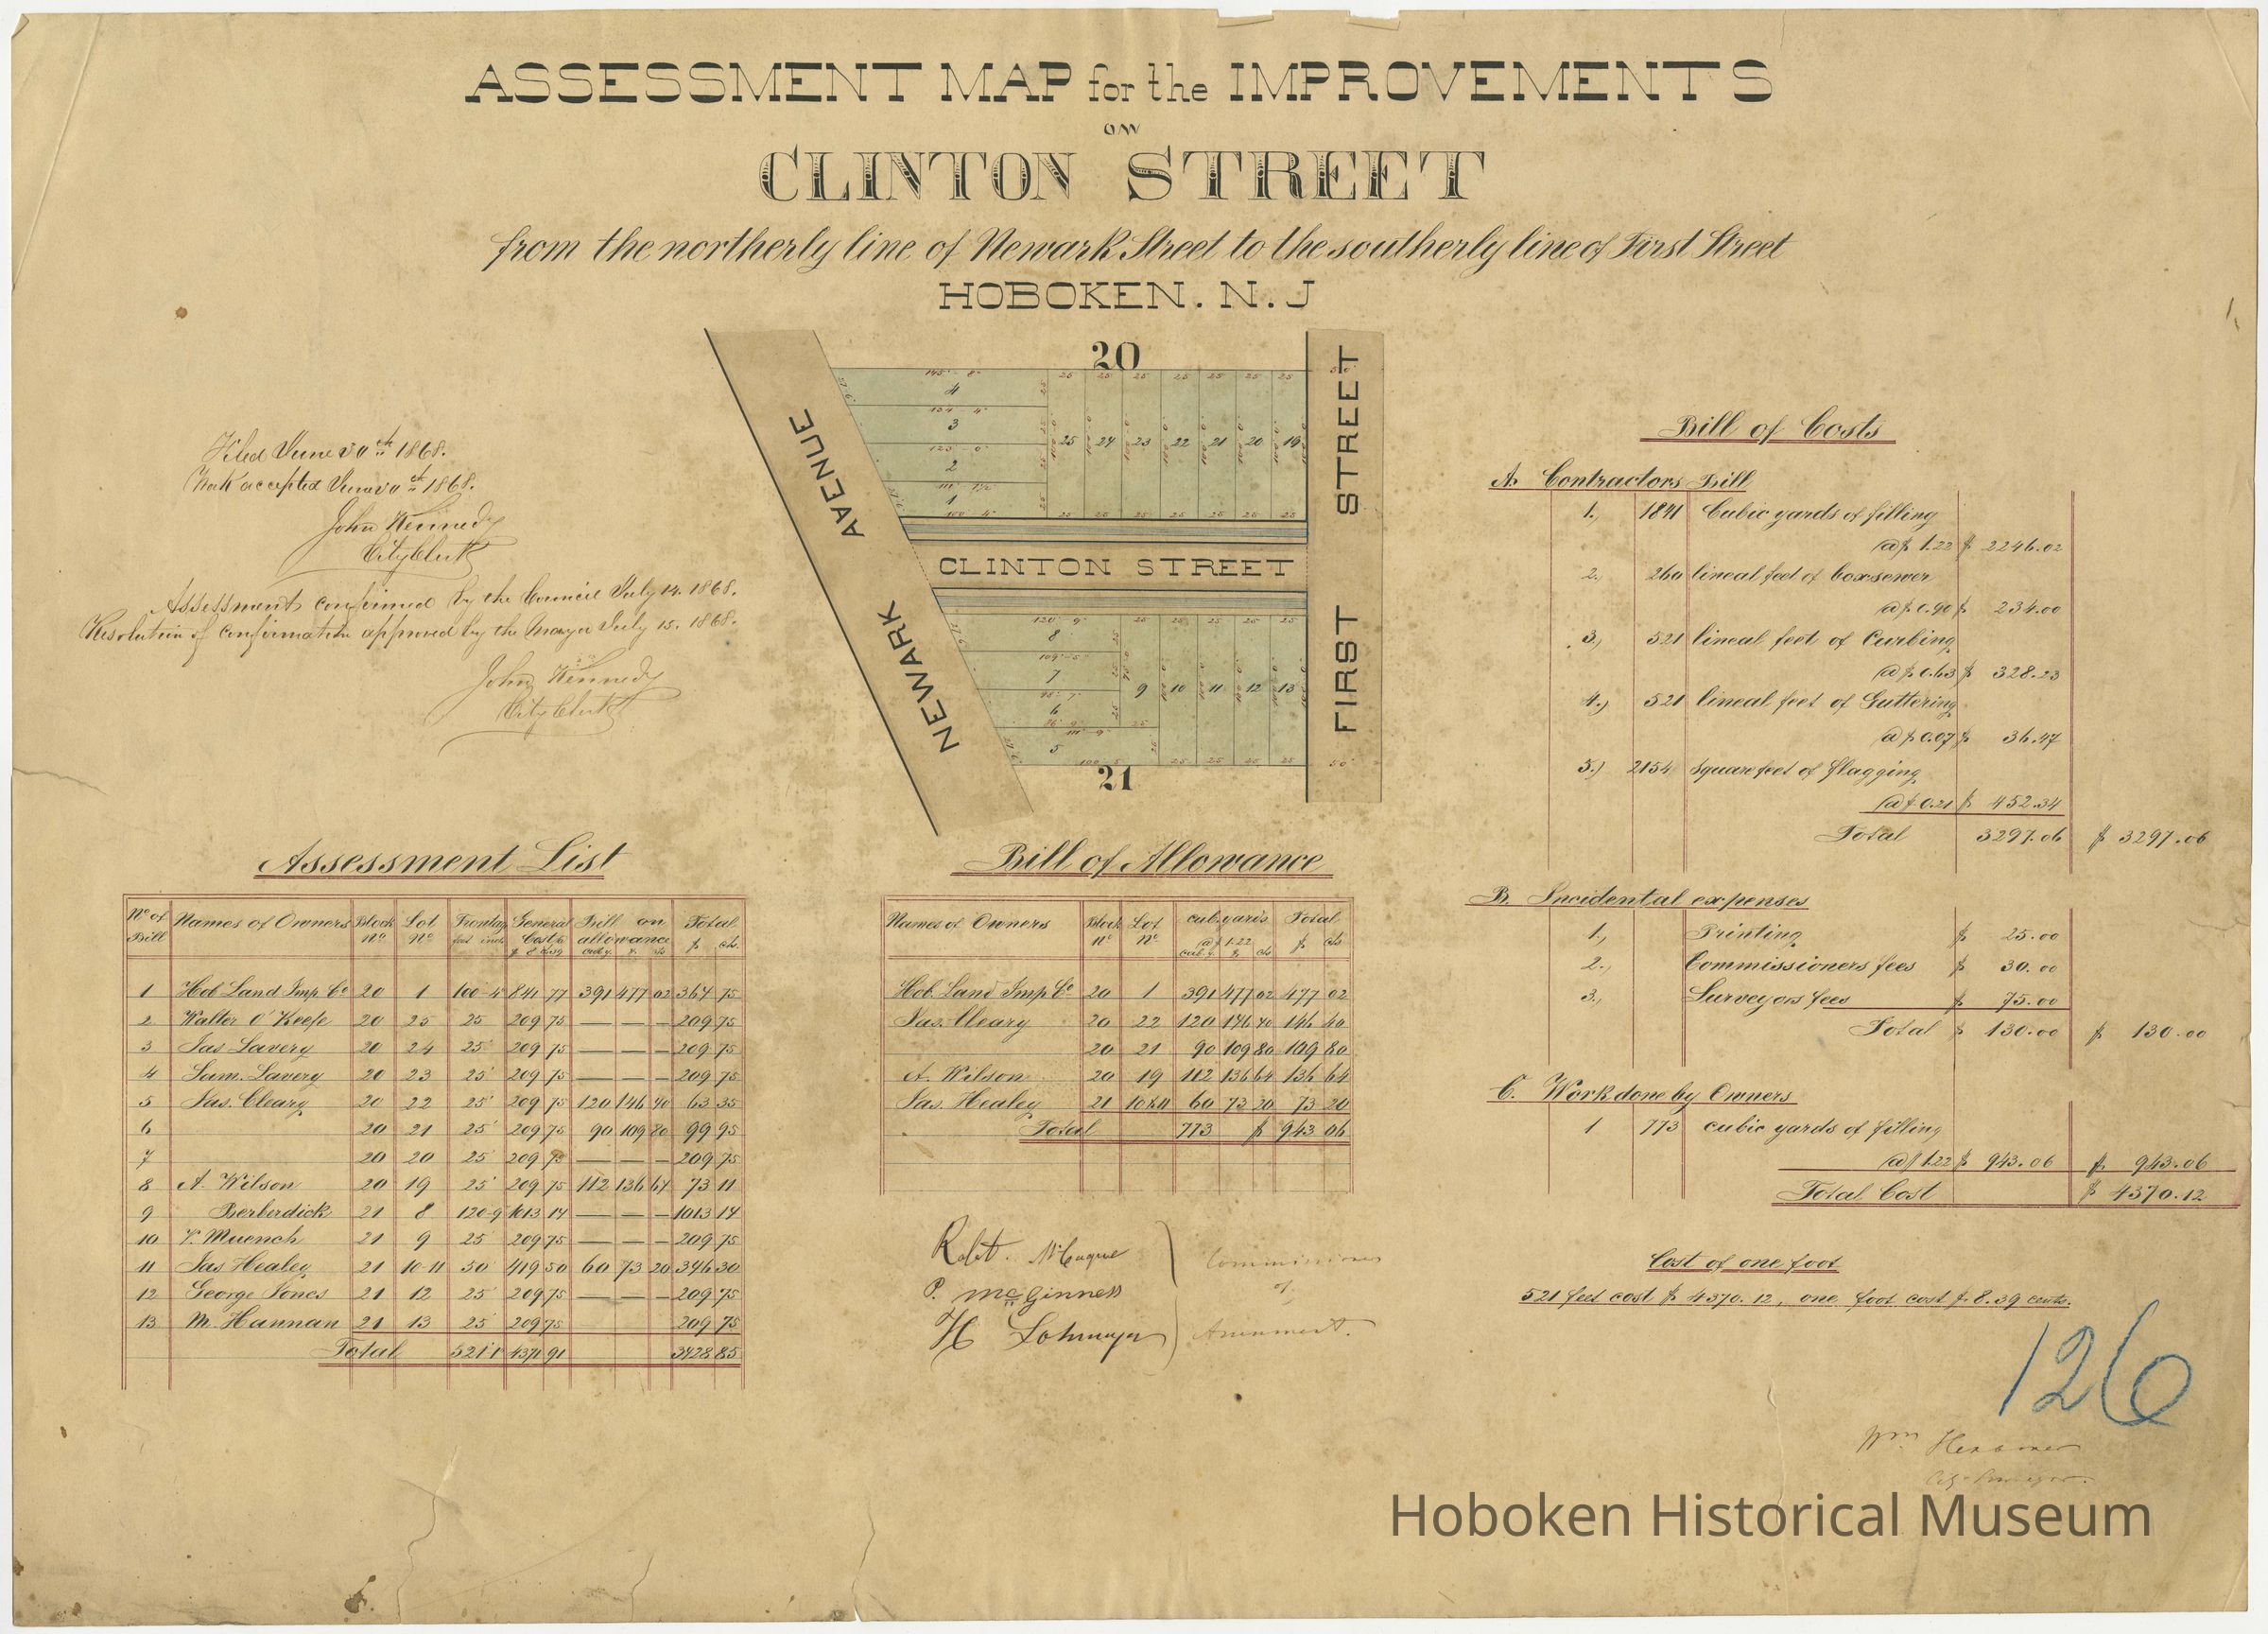 ASSESSMENT MAP for the IMPROVEMENTS
ON
CLINTON STREET
from the northerly line of Newark Street to the southerly line of First Street
HOBOKEN. N. J
20
145' 8"
25 25 25 25 25 25 25
4
134 4"
3
123 0"
2
111 1/2
1
100 4"
25 24 23 22 21 20 19
25 25 25 25 25 25 25
CLINTON STREET
NEWARK AVENUE
FIRST STREET
120' 9"
25 25 25 25 25
8
109'-5"
7
98' 7"
6
5
9 10 11 12 13
25 25 25 25
50'
21
Filed June 30th 1868.
Work accepted June 30th 1868.
John Kennedy
City Clerk
Assessment confirmed by the Council July 14. 1868.
Resolution of confirmation approved by the Mayor July 15. 1868.
John Kennedy
City Clerk
Assessment List
No of Bill Names of Owners Block No Lot No Frontage feet inch General Costs Bill on allowance cub. y. $ cts Total $ cts.
1 Hob Land Imp Co 20 1 100-4 841 77 391 477 02 364 75
2 Walter O'Keefe 20 25 25 209 75 — — — 209 75
3 Jas Lavery 20 24 25' 209 75 — — — 209 75
4 Sam. Lavery 20 23 25' 209 75 — — — 209 75
5 Jas. Cleary 20 22 25' 209 75 120 146 40 63 35
6 20 21 25' 209 75 90 109 80 99 95
7 20 20 25' 209 75 — — — 209 75
8 A. Wilson 20 19 25' 209 75 112 136 64 73 11
9 Berberdick 21 8 120-9 1013 14 — — — 1013 14
10 Muench 21 9 25 209 75 — — — 209 75
11 Jas Healey 21 10-11 50' 419 50 60 73 20 346 30
12 George Jones 21 12 25' 209 75 — — — 209 75
13 M. Hannan 21 13 25' 209 75 209 75
Total 521'1 4371 91 3428 85
Bill of Allowance
Names of Owners Block No Lot No cub. yards @ $ 1.22 cub. y. $ cts Total $ cts
Hob. Land Imp Co 20 1 391 477 02 477 02
Jas. Cleary 20 22 120 146 40 146 40
20 21 90 109 80 109 80
A. Wilson 20 19 112 136 64 136 64
Jas. Healey 21 10 & 11 60 73 20 73 20
Total 773 $ 943 06
Robt. McCague
P. McGinness
H Lohmeyer
Commissioners
of
Assessment.
Bill of Costs
A. Contractors Bill
1., 1841 Cubic yards of filling
@ $ 1.22 $ 2246.02
2.) 260 lineal feet of box sewer
@ $ 0.90 $ 234.00
3.) 521 lineal feet of Curbing
@ $ 0.63 $ 328.23
4.) 521 lineal feet of Guttering
@ $ 0.07 $ 36.47
5.) 2154 square feet of flagging
@ $ 0.21 $ 452.34
Total 3297.06 $ 3297.06
B. Incidental expenses
1., Printing $ 25.00
2., Commissioners fees $ 30.00
3., Surveyors fees $ 75.00
Total $ 130.00 $ 130.00
C. Work done by Owners
1 773 cubic yards of filling
@ $ 1.22 $ 943.06 $ 943.06
Total Cost $ 4370.12
Cost of one foot
521 feet cost $ 4370.12, one foot cost $ 8.39 cents.
126
Wm
Hoboken Historical Museum